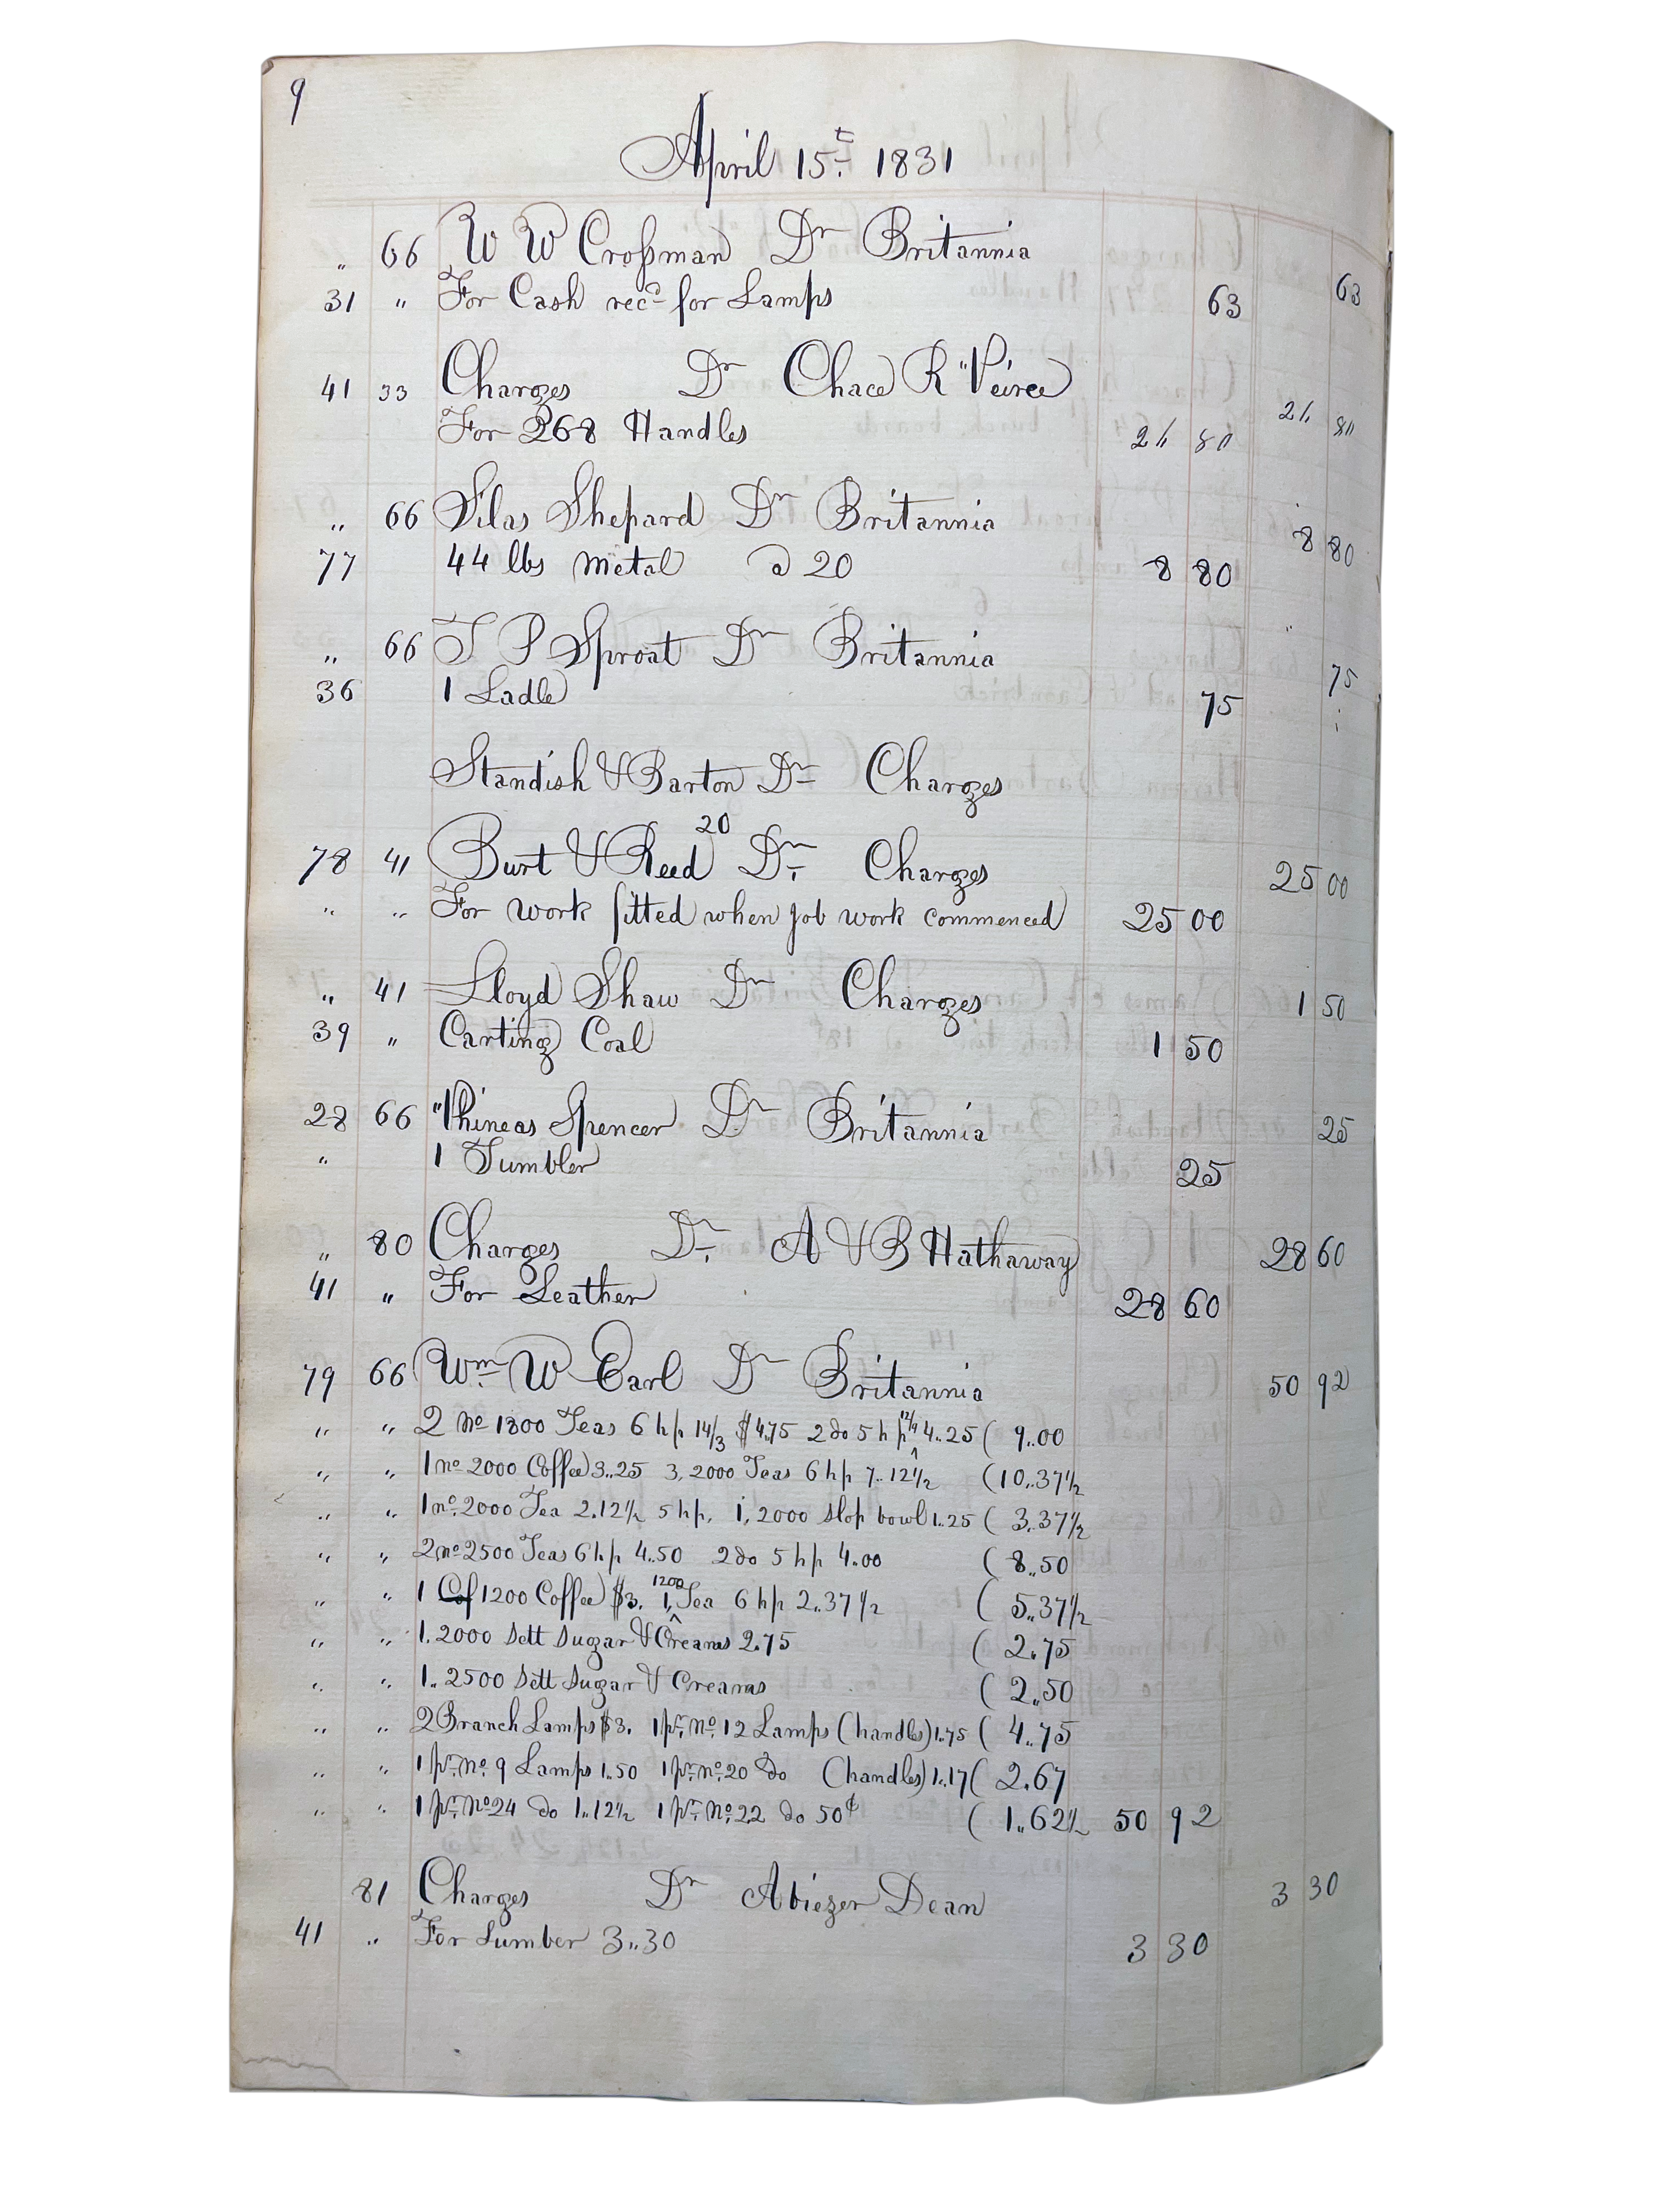 9
April 15.t 1831
" 66 W W Croſsman Dr Britannia
31 " For Cash recd for Lamps 63 63
41 33 Charges Dr Chace R Peirce
For 268 Handles 21 80 21 80
" 66 Silas Shepard Dr Britannia
77 44 lbs Metal @ 20 8 80 8 80
" 66 T P Sproat Dr Britannia
36 1 Ladle 75 75
Standish & Barton Dr Charges
20
78 41 Burt & Reed Dr. Charges 25 00
" " For work fitted when job work commenced 25 00
" 41 Lloyd Shaw Dr Charges 1 50
39 " Carting Coal 1 50
28 66 Phineas Spencer Dr Britannia 25
" 1 Tumbler 25
" 80 Charges Dr. A & B Hathaway 28 60
41 " For Leather 28 60
79 66 Wm W Earl Dr Britannia 50 92
" " 2 no 1800 Teas 6 hp 14/3 $4.75 2 do 5 hp 12/9 4..25 ( 9..00
" " 1 no 2000 Coffee 3..25 3, 2000 Teas 6 hp 7..12 1/2 (10..37 1/2
" " 1 no. 2000 Tea 2.12 1/2 5 hp, 1, 2000 slop bowl 1..25 ( 3..37 1/2
" " 2 no 2500 Teas 6 hp 4..50 2 do 5 hp 4..00 ( 8..50
" " 1 Cof 1200 Coffee $3. 1, 1200 Tea 6 hp 2..37 1/2 ( 5..37 1/2
" " 1. 2000 Sett Sugar & Creams 2.75 ( 2..75
" " 1.. 2500 Sett Sugar & Creams ( 2..50
" " 2 Branch Lamps $3. 1 pr. no. 12 Lamps (handles) 1..75 ( 4..75
" " 1 pr. no. 9 Lamps 1..50 1 pr. no. 20 do (handles) 1..17 ( 2.67
" " 1 pr. No 24 do 1..12 1/2 1 pr. No. 22 do 50¢ ( 1..62 1/2 50 92
81 Charges Dr Abiezer Dean 3 30
41 " For Lumber 3..30 3 30